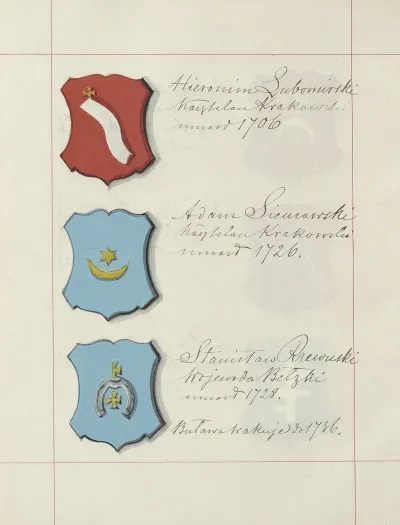 Hieronim Lubomirski
Kasztelan Krakowski
umarł 1706
Adam Sieniawski
Kasztelan Krakowski
umarł 1726.
Stanisław Rzewuski
Wojewoda Bełzki
umarł 1728.
Buława wakuje do 1736.